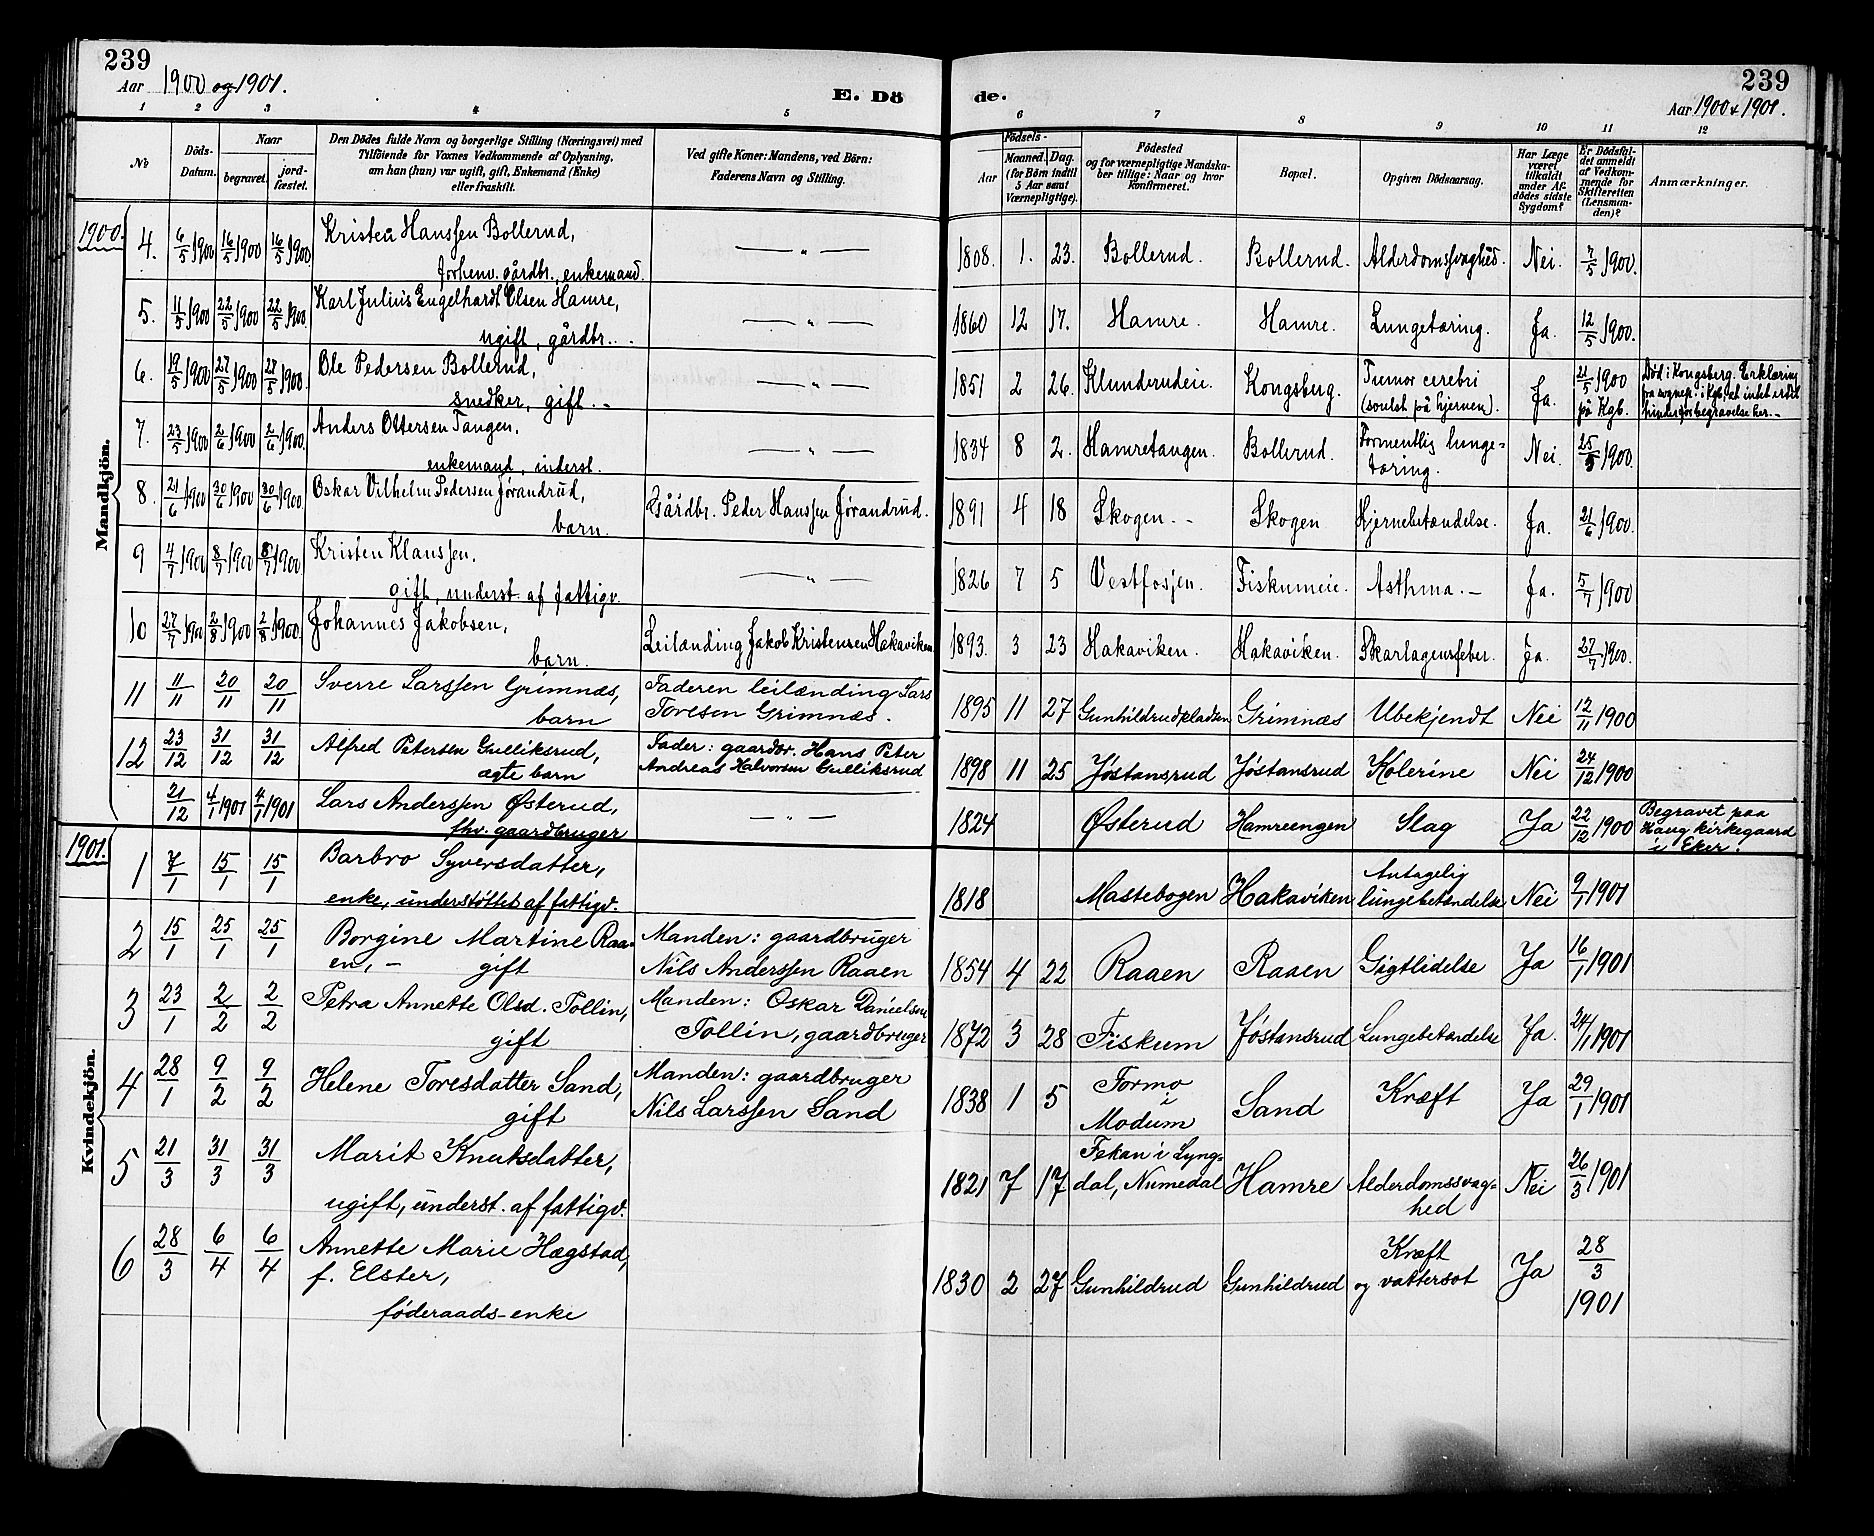 239
Aar 1900 og 1901.
E. Dö
de.
239
Aar 1900 & 1901.
1 2 3 4 5 6 7 8 9 10 11 12
No
Döds-
Datum.
Naar
begravet.
jord-
fæstet.
Den Dödes fulde Navn og borgerlige Stilling (Næringsvei) med
Tilföiende for Voxnes Vedkommende af Oplysning,
om han (hun) var ugift, gift, Enkemand (Enke)
eller fraskilt.
Ved gifte Koner: Mandens, ved Börn:
Faderens Navn og Stilling.
Födsels-
Aar
Maaned. Dag.
(for Börn indtil
5 Aar samt
Værnepligtige).
Födested
og for værnepligtige Mandska-
ber tillige: Naar og hvor
Konfirmeret.
Bopæl.
Opgiven Dödsaarsag.
Har Læge
været
tilkaldt
under Af-
dödes sidste
Sygdom?
Er Dödsfal-
det anmeldt
af Vedkom-
mende for
Skifteretten
(Lensman-
den)?
Anmærkninger.
Mandkjön.
1900.
4. 6/5 1900 16/5 1900 16/5 1900 Kristen Hanssen Bollerud, — „ — 1808. 1. 23. Bollerud. Bollerud. Alderdomssvaghed. Nei. 7/5 1900.
forhenv. gårdbr., enkemand.
5. 11/5 1900 22/5 1900 22/5 1900 Karl Julius Engelhardt Olsen Hamre, — „ — 1860 12 17. Hamre. Hamre. Lungetæring. Ja. 12/5 1900.
ugift, gårdbr.
6. 19/5 1900 27/5 1900 27/5 1900. Ole Pedersen Bollerud, — „ — 1851 2 26. Klunderudeie. Kongsberg. Tumor cerebri Ja. 21/5 1900 Død i Kongsberg. Erklæring
snedker, gift. (svulst på hjernen). på Kgb. fra sognep. i Kgb, at intet er til
hinder for begravelse her.
7. 23/5 1900 2/6 1900 2/6 1900 Anders Ottersen Tangen, — „ — 1834 8 2. Hamretangen. Bollerud. Formentlig lunge- Nei. 25/5 1900.
enkemand, inderst. tæring.
8. 21/6 1900 30/6 1900 30/6 1900 Oskar Vilhelm Pedersen Jørandrud, Gårdbr. Peder Hanssen Jørandrud. 1891 4 18 Skogen. Skogen Hjernebetændelse. Ja. 21/6 1900.
barn.
9 4/7 1900 8/7 1900 8/7 1900 Kristen Klaussen, — „ — 1826 7 5 Vestfosjen. Fiskumeie. Asthma. Ja. 5/7 1900.
gift, underst. af fattigv.
10 27/7 1900 2/8 1900 2/8 1900. Johannes Jakobsen, Leilænding Jakob Kristensen Hakaviken. 1893. 3 23 Hakaviken. Hakaviken. Skarlagensfeber. Ja. 27/7 1900.
barn.
11 11/11 20/11 20/11 Sverre Larssen Grimnæs, Faderen leilænding Lars 1895 11 27 Gunhildrudpladsen Grimnæs Ubekjendt Nei 12/11 1900
barn Toresen Grimnæs.
12 23/12 31/12 31/12 Alfred Petersen Gulliksrud, Fader: gaardbr. Hans Peter 1898 11 25 Jøstansrud Jøstansrud Kolerine Nei 24/12 1900
ægte barn Andreas Halvorsen Gulliksrud
21/12 4/1 1901 4/1 1901 Lars Anderssen Østerud, — „ — 1824 Østerud Hamreengen Slag Ja 22/12 1900 Begravet paa
fhv. gaardbruger Haug kirkegaard
i Eker.
Kvindekjön.
1901.
1 7/1 15/1 15/1 Barbro Syversdatter, 1818 Mastebogen Hakaviken Antagelig Nei 9/1 1901
enke, understøttet af fattigv. lungebetændelse
2 15/1 25/1 25/1 Borgine Martine Raa- Manden: gaardbruger 1854 4 22 Raaen Raaen Gigtlidelse Ja 16/1 1901
en, - gift Nils Anderssen Raaen
3 23/1 2/2 2/2 Petra Annette Olsd. Tollin, Manden: Oskar Danielsen 1872 3 28 Fiskum Jøstansrud Lungebetændelse Ja. 24/1 1901
gift Tollin, gaardbruger
4 28/1 9/2 9/2 Helene Toresdatter Sand, Manden: gaardbruger 1838 1 5 Formo Sand Kræft Ja 29/1 1901
gift Nils Larssen Sand i
Modum
5 21/3 31/3 31/3 Marit Knutsdatter, 1821 7 17 Fekan i Lyng- Hamre Alderdomssvag- Nei 26/3 1901
ugift, underst. af fattigv. dal, Numedal hed
6 28/3 6/4 6/4 Annette Marie Hægstad, 1830 2 27 Gunhildrud Gunhildrud Kræft Ja 28/3
f. Elster, og vattersot 1901
føderaads-enke